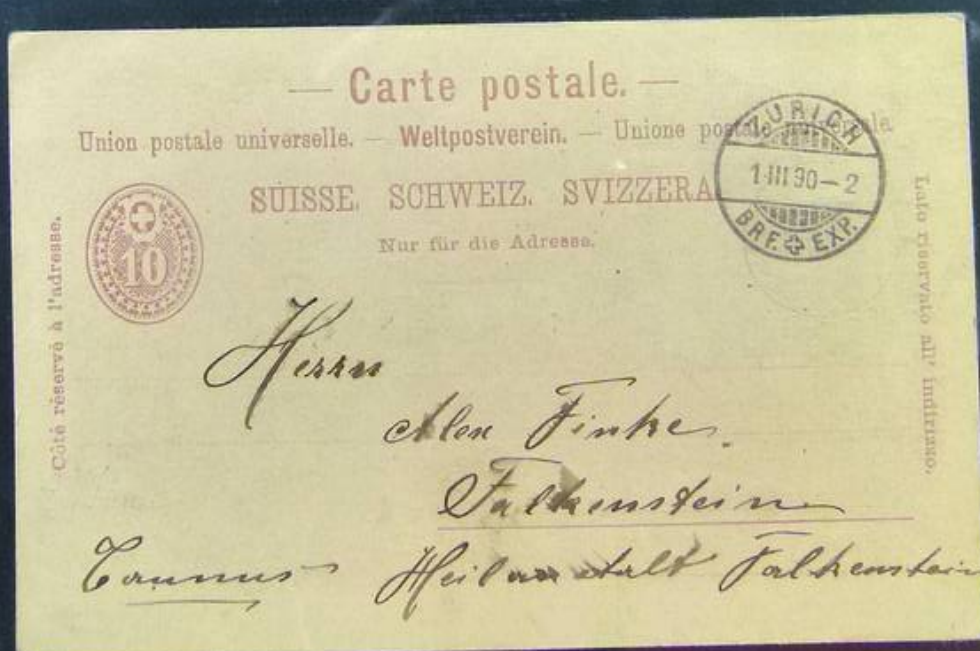 — Carte postale. —
Union postale universelle. — Weltpostverein. — Unione postale
SUISSE. SCHWEIZ. SVIZZERA.
Nur für die Adresse.
ZÜRICH
1 III 90 – 2
BRF. EXP.
10
Côté réservé à l'adresse.
Lato riservato all' indirizzo.
Herrn
Alex Finke.
Falkenstein
Taunus Heilanstalt Falkenstein